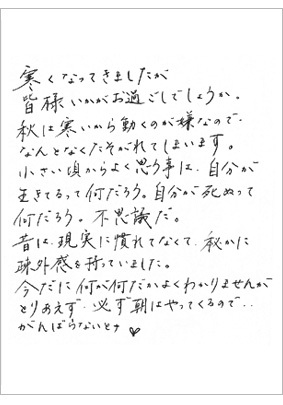 寒くなってきましたが
皆様いかがお過ごしでしょうか。
秋は寒いから動くのが嫌なので、
なんとなくたそがれてしまいます。
小さい頃からよく思う事は、自分が
生きてるって何だろう。自分が死ぬって
何だろう。不思議だ。
昔は、現実に慣れてなくて、秘かに
疎外感を持っていました。
今だに何が何だかよくわかりませんが
とりあえず、必ず朝はやってくるので‥
がんばらないとナ♥